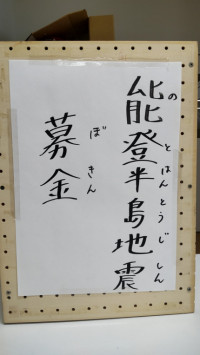 能登半島地震
のとはんとうじしん
募金
ぼきん